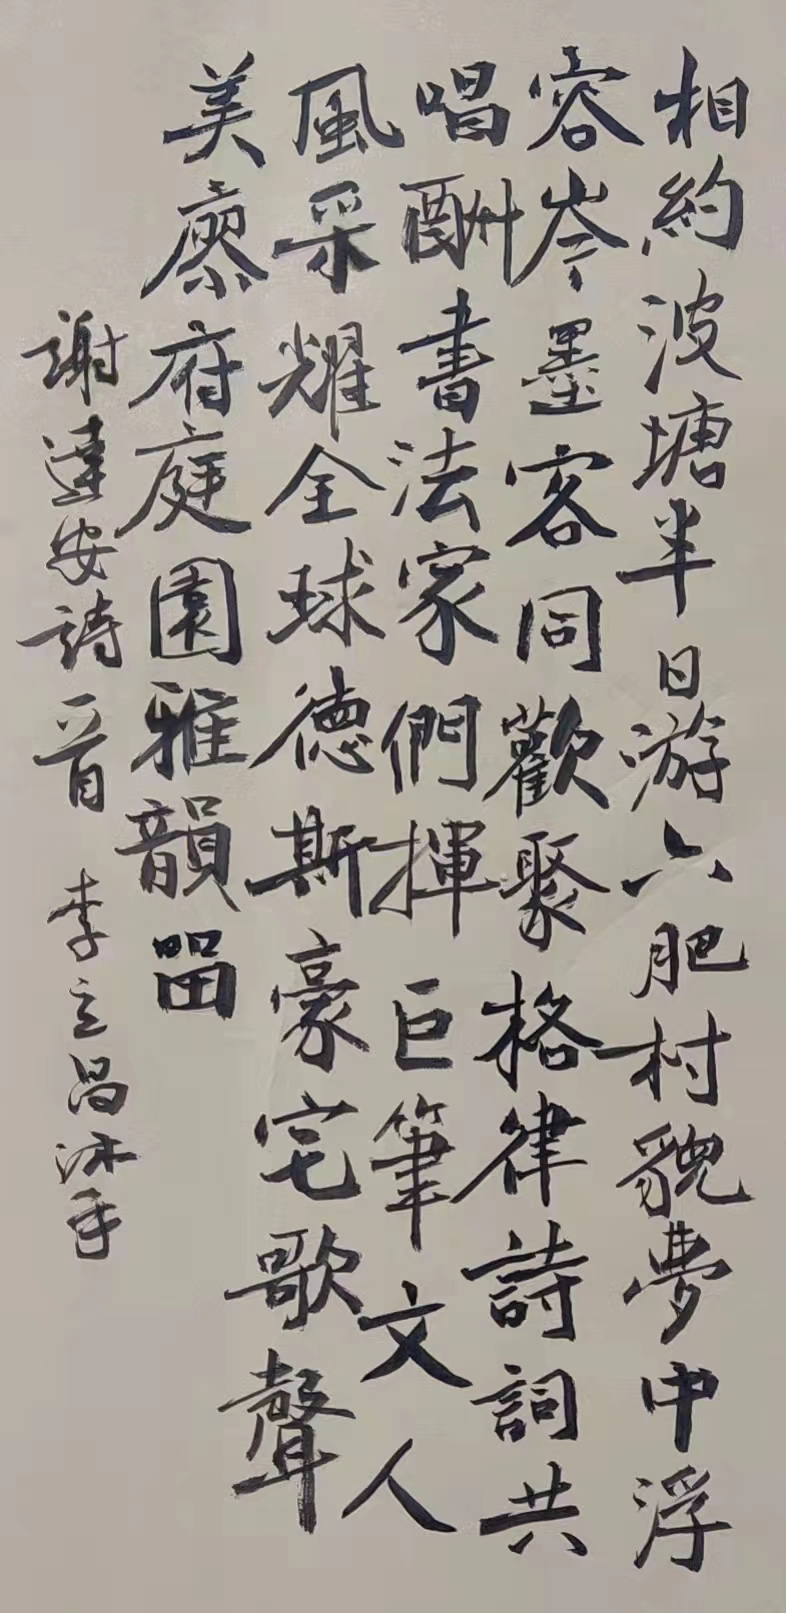 相約波塘半日游六肥村貌夢中浮
容岑墨客同歡聚格律詩詞共
唱酬書法家們揮巨筆文人
風采耀全球德斯豪宅歌聲
美廖府庭園雅韻畱
謝達安詩一首 李立昌沐手